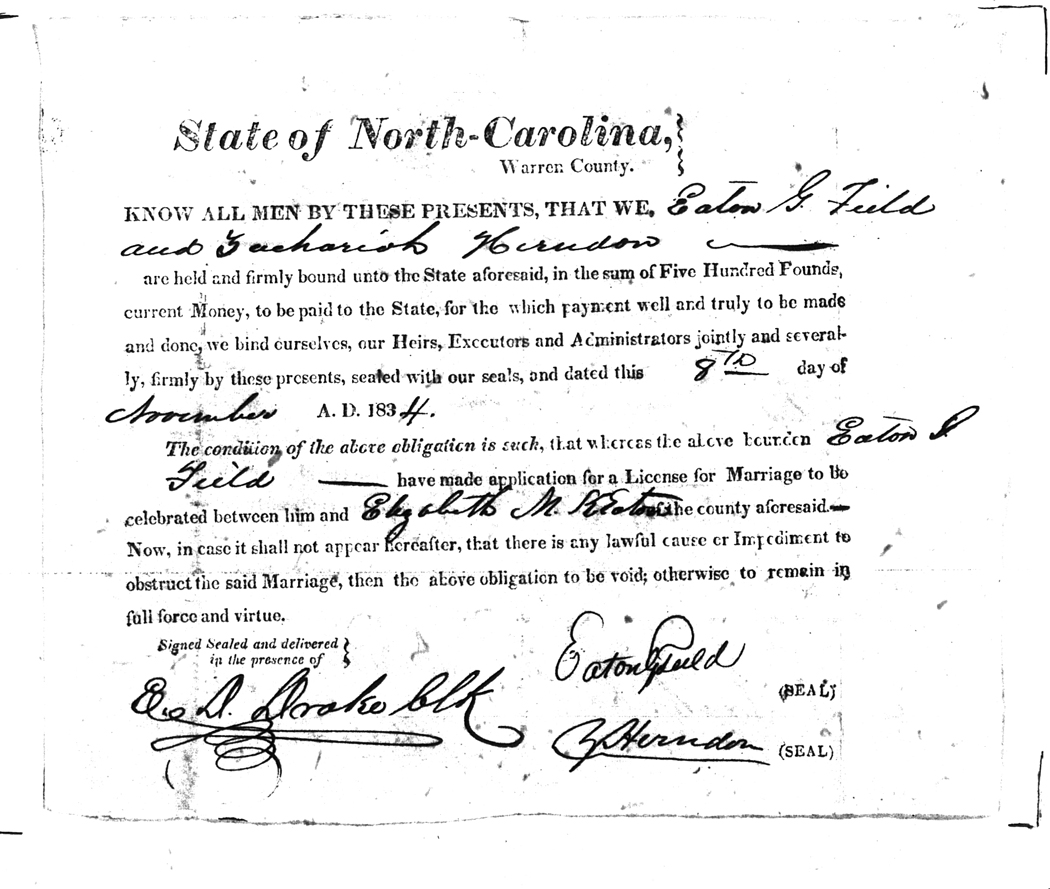 State of North-Carolina,
Warren County.
KNOW ALL MEN BY THESE PRESENTS, THAT WE, Eaton G. Field
and Zachariah Herndon
are held and firmly bound unto the State aforesaid, in the sum of Five Hundred Pounds,
current Money, to be paid to the State, for the which payment well and truly to be made
and done, we bind ourselves, our Heirs, Executors and Administrators jointly and several-
ly, firmly by these presents, sealed with our seals, and dated this 8TH day of
November A. D. 1834.
The condition of the above obligation is such, that whereas the above bounden Eaton G.
Field have made application for a License for Marriage to be
celebrated between him and Elizabeth M. Eaton of the county aforesaid.
Now, in case it shall not appear hereafter, that there is any lawful cause or Impediment to
obstruct the said Marriage, then the above obligation to be void; otherwise to remain in
full force and virtue.
Signed Sealed and delivered
in the presence of
Eaton G Field
(SEAL)
E. D. Drake Clk
Z Herndon (SEAL)